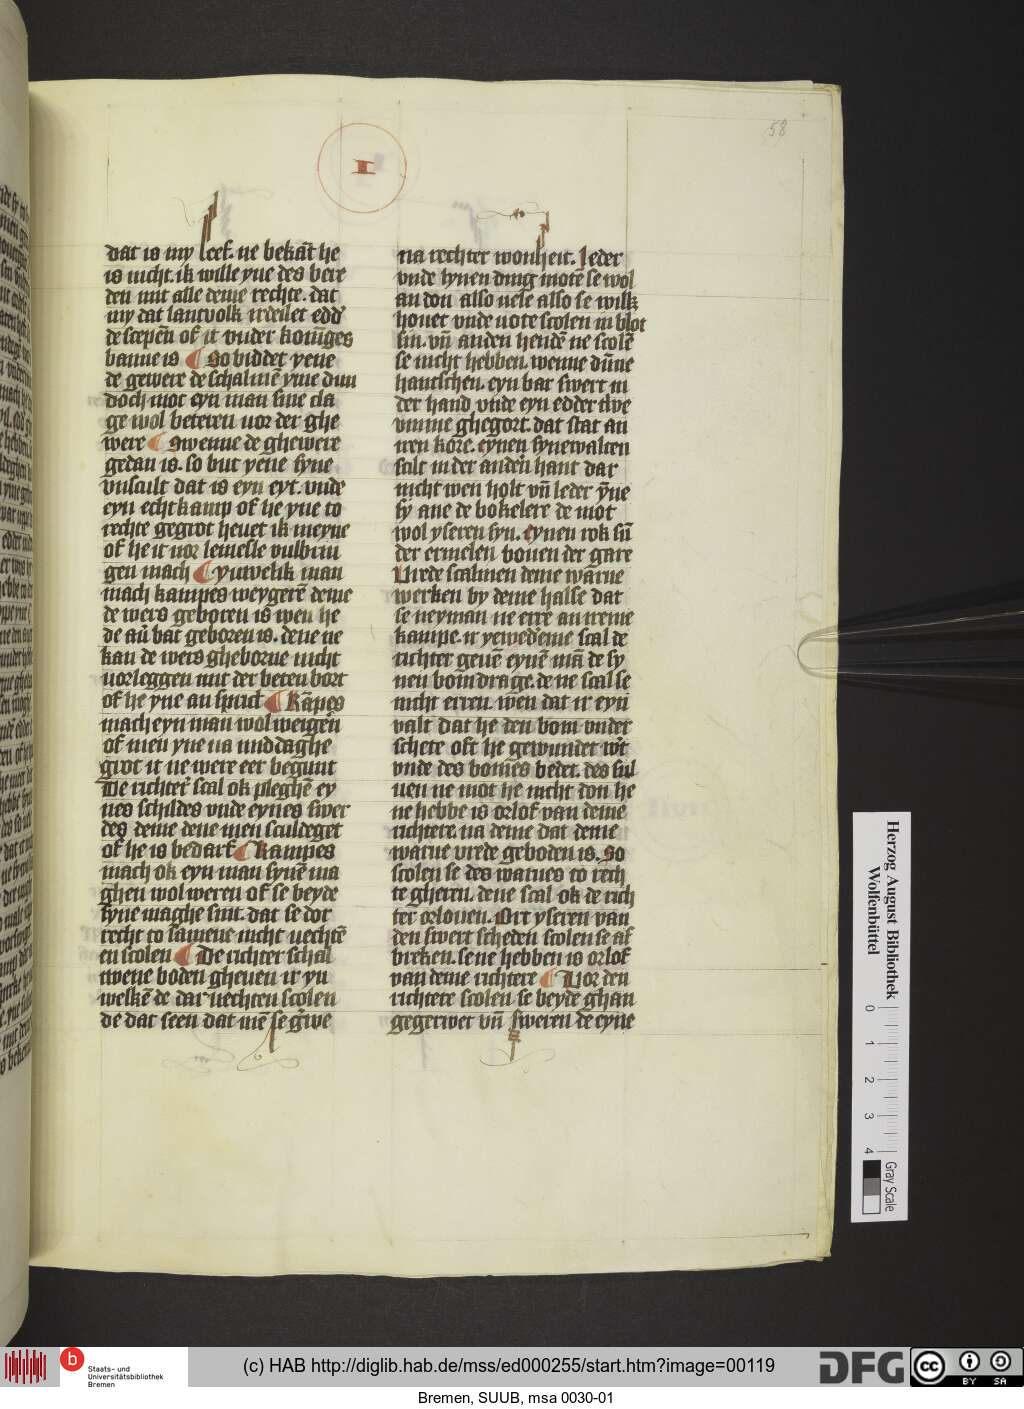 58
I
dat is my leef. ne bekāt he
is nicht. ik wille yne des bere
den mit alle deme rechte. dat
my dat lantvolk irdeilet edd'
de scepēn of it vnder konīges
banne is ¶ So biddet yene
de gewere de schalmē yme dun
doch mot eyn man sine cla
ge wol beteren vor der ghe
were ¶ Swenne de ghewere
gedan is. so but yene syne
vnscult dat is eyn eyt. vnde
eyn echt kamp of he yne to
rechte gegrot hevet ik meyne
of he it vor lemesle vulbrin
gen mach ¶ yuwelik man
mach kampes weygerē deme
de wers geboren is wen he
de aū bat geboren is. deue ne
kan de wers gheborne nicht
vorleggen mit der beteren bort
of he yne an sprict ¶ Kāpes
mach eyn man wol weigeřn
of men yne na middaghe
grot it ne were eer begunt
De richter scal ok pleghē ey
nes schildes vnde eynes swer
des deme dene men sculdeget
of he is bedarf ¶ Kampes
mach ok eyn man synē ma
ghen wol weren of se beyde
syne maghe sint. dat se dor
recht to samene nicht vechtē
en scolen ¶ De richter schal
twene boden gheuen ir yn
welkē de dar vechten scolen
de dat seen dat mē se g'we
na rechter wonheit. Leder
vnde lynen ding motē se wol
an don also vele also se willē
hovet vnde vote scolen in blot
sin. vn̄ anden hendē ne scolē
se nicht hebben. wenne dūne
hantschen. eyn bar swert in
der hand vnde eyn edder twe
vmme ghegort. dat stat an
eren kore. eynen synewalten
scilt in der anderē hant dar
nicht wen holt vn̄ leder ȳne
sy ane de bokelere de mot
wol yseren syn. eynen rok sūd
der ermelen boven der gare
Vrede scalmen deme warue
werken by deme halse dat
se neyman ne erre an ireme
kampe. ir yewedeme scal de
richter geuē eynē mā de sy
nen bom drage. de ne scal se
nicht erren. wen dat ir eyn
valt dat he den bom vnder
schete oft he gewundet w't
vnde des bomes bedet. des sul
uen ne mot he nicht don he
ne hebbe is orlof van deme
richtere. na deme dat deme
warue vrede geboden is. So
scolen se des warues to rech
te gheren. dene scal ok ie rich
ter orloven. Dit yseren van
den swert scheden scolen se af
breken. se ne hebben is orlof
van deme richtere ¶ Vor den
richtere scolen se beyde ghan
gegerwet vn̄ sweren de eyne
Herzog August Bibliothek
Wolfenbüttel
0 1 2 3 4
Gray Scale
b Staats- und
Universitätsbibliothek
Bremen
(c) HAB http://diglib.hab.de/mss/ed000255/start.htm?image=00119
DFG
cc BY SA
Bremen, SUUB, msa 0030-01